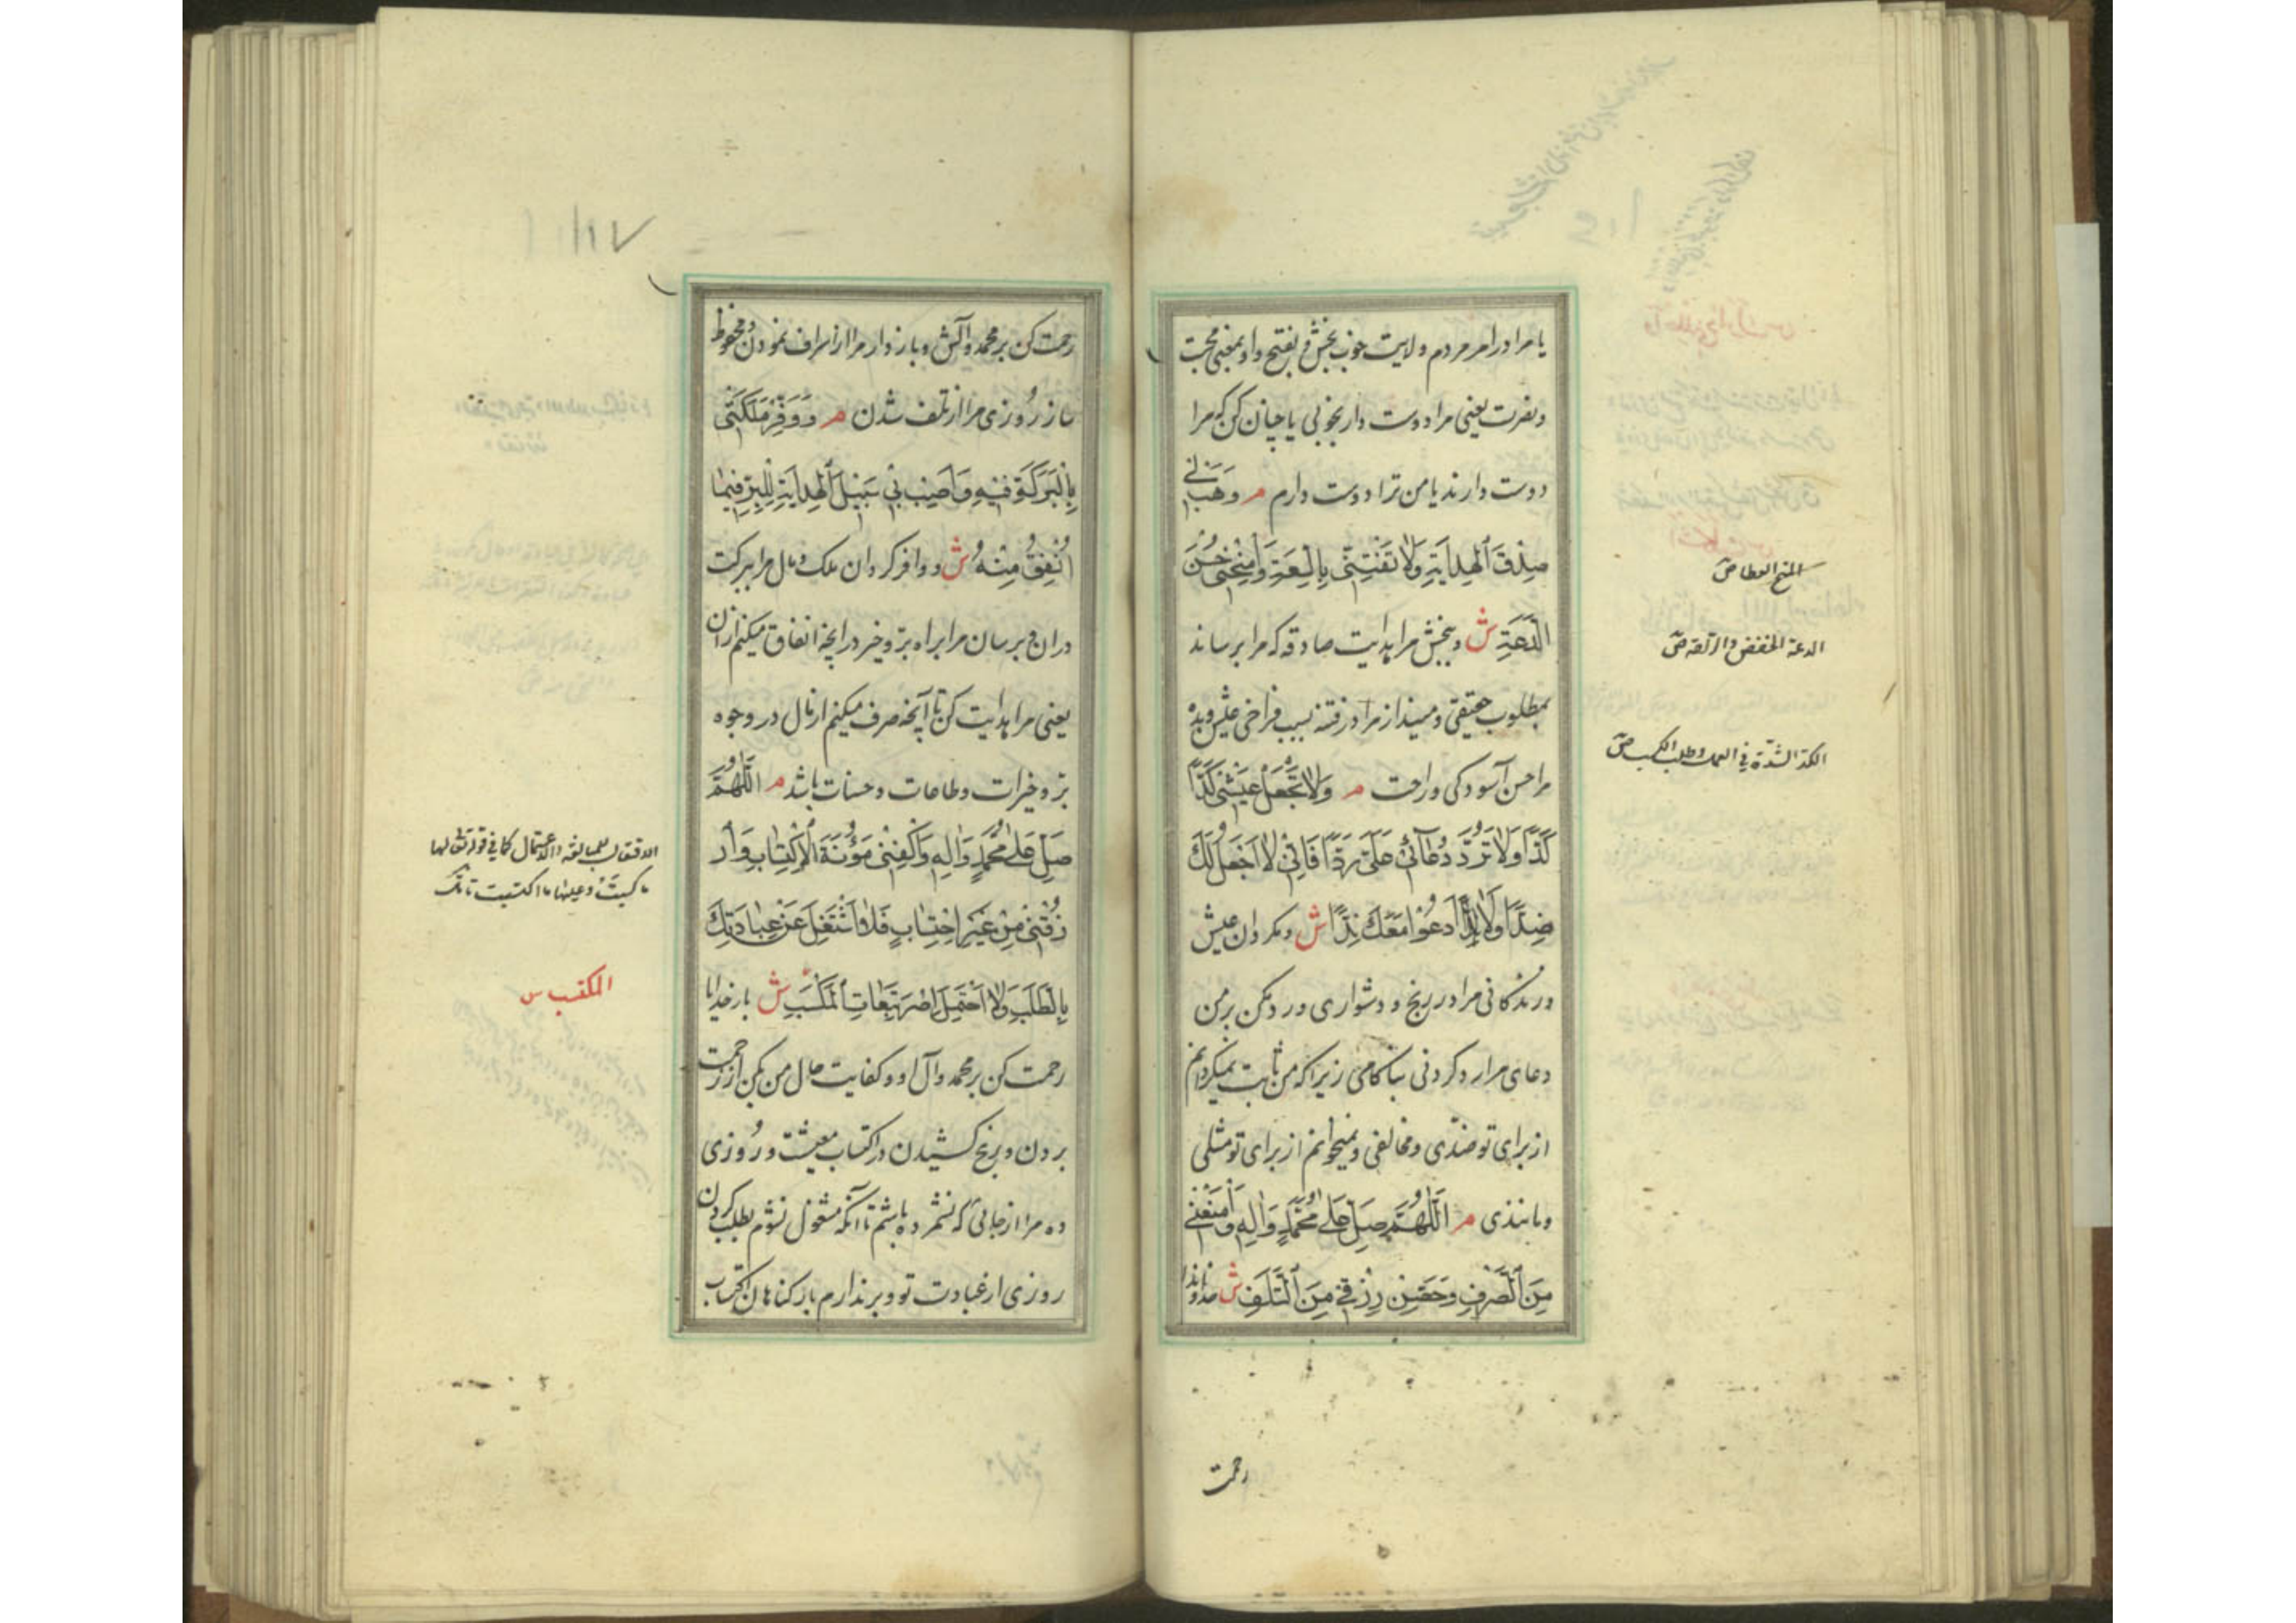 یا مرا در امر مردم ولایت خوب بخش فی بفتح واو بمعنی محبت
ونصرت یعنی مرا دوست دار بخوبی یا چنان کن که مرا
دوست دارند یا من ترا دوست دارم م وَهَبْ لِی
صِدْقَ الْهِدَایَةِ وَلَا تَفْتِنِّی بِالسَّعَةِ وَامْنَحْنِی حُسْنَ
الدَّعَةِ ش وببخش مرا هدایت صادقه که مرا برساند
بمطلوب حقیقی ومینداز مرا در فتنه بسبب فراخی عیش وبده
مرا حسن آسودکی وراحت م وَلَا تَجْعَلْ عَیْشِی کَدًّا
کَدًّا وَلَا تَرُدَّ دُعَآئِی عَلَیَّ رَدًّا فَاِنِّی لَا اَجْعَلُ لَکَ
ضِدًّا وَلَا اَدْعُوا مَعَکَ نِدًّا ش ومکردان عیش
وزندکانی مرا در رنج ودشواری ورد مکن بر من
دعای مرا رد کردنی بناکامی زیرا که من ثابت نمیکردانم
از برای تو ضدّی ومخالفی ونمیخوانم از برای تو مثلی
ومانندی م اَللّٰهُمَّ صَلِّ عَلٰی مُحَمَّدٍ وَاٰلِهِ وَامْنَعْنِی
مِنَ السَّرَفِ وَحَصِّنْ رِزْقِی مِنَ التَّلَفِ ش خداوندا
المنح العطا ص
الدعة الخفض والراحة ص
الکد الشدّة فی العمل وطلب الکسب ص
رحمت
رحمت کن بر محمد وآلش وباز دار مرا از اسراف نمودن ومحفوظ
ساز روزی مرا از تلف شدن م وَوَفِّرْ مَلَکَتِی
بِالْبَرَکَةِ فِیهِ وَاَصِبْ بِی سَبِیلَ الْهِدَایَةِ لِلْبِرِّ فِیمَا
اُنْفِقُ مِنْهُ ش ووافر کردان ملک ومال مرا ببرکت
در ان وبرسان مرا براه برّ وخیر در انچه انفاق میکنم ازان
یعنی مرا هدایت کن تا آنچه صرف میکنم از مال در وجوه
برّ وخیرات وطاعات وحسنات باشد م اَللّٰهُمَّ
صَلِّ عَلٰی مُحَمَّدٍ وَاٰلِهِ وَاکْفِنِی مَؤُنَةَ الْاِکْتِسَابِ وَارْ
زُقْنِی مِنْ غَیْرِ احْتِسَابٍ فَلَا اَشْتَغِلَ عَنْ عِبَادَتِکَ
بِالطَّلَبِ وَلَا اَحْتَمِلَ اِصْرَ تَبِعَاتِ الْمَکْسَبِ ش بارخدایا
رحمت کن بر محمد وآل او وکفایت حال من بکن از زحمت
بردن ورنج کشیدن در اکتساب معیشت وروزی
ده مرا از جائی که نشمرده باشم تا آنکه مشغول نشوم بطلب کردن
روزی از عبادت تو وبرندارم بار کناهان اکتساب
کما فی قوله تعالی لها
ما کسبت وعلیها ما اکتسبت
المکتسب س